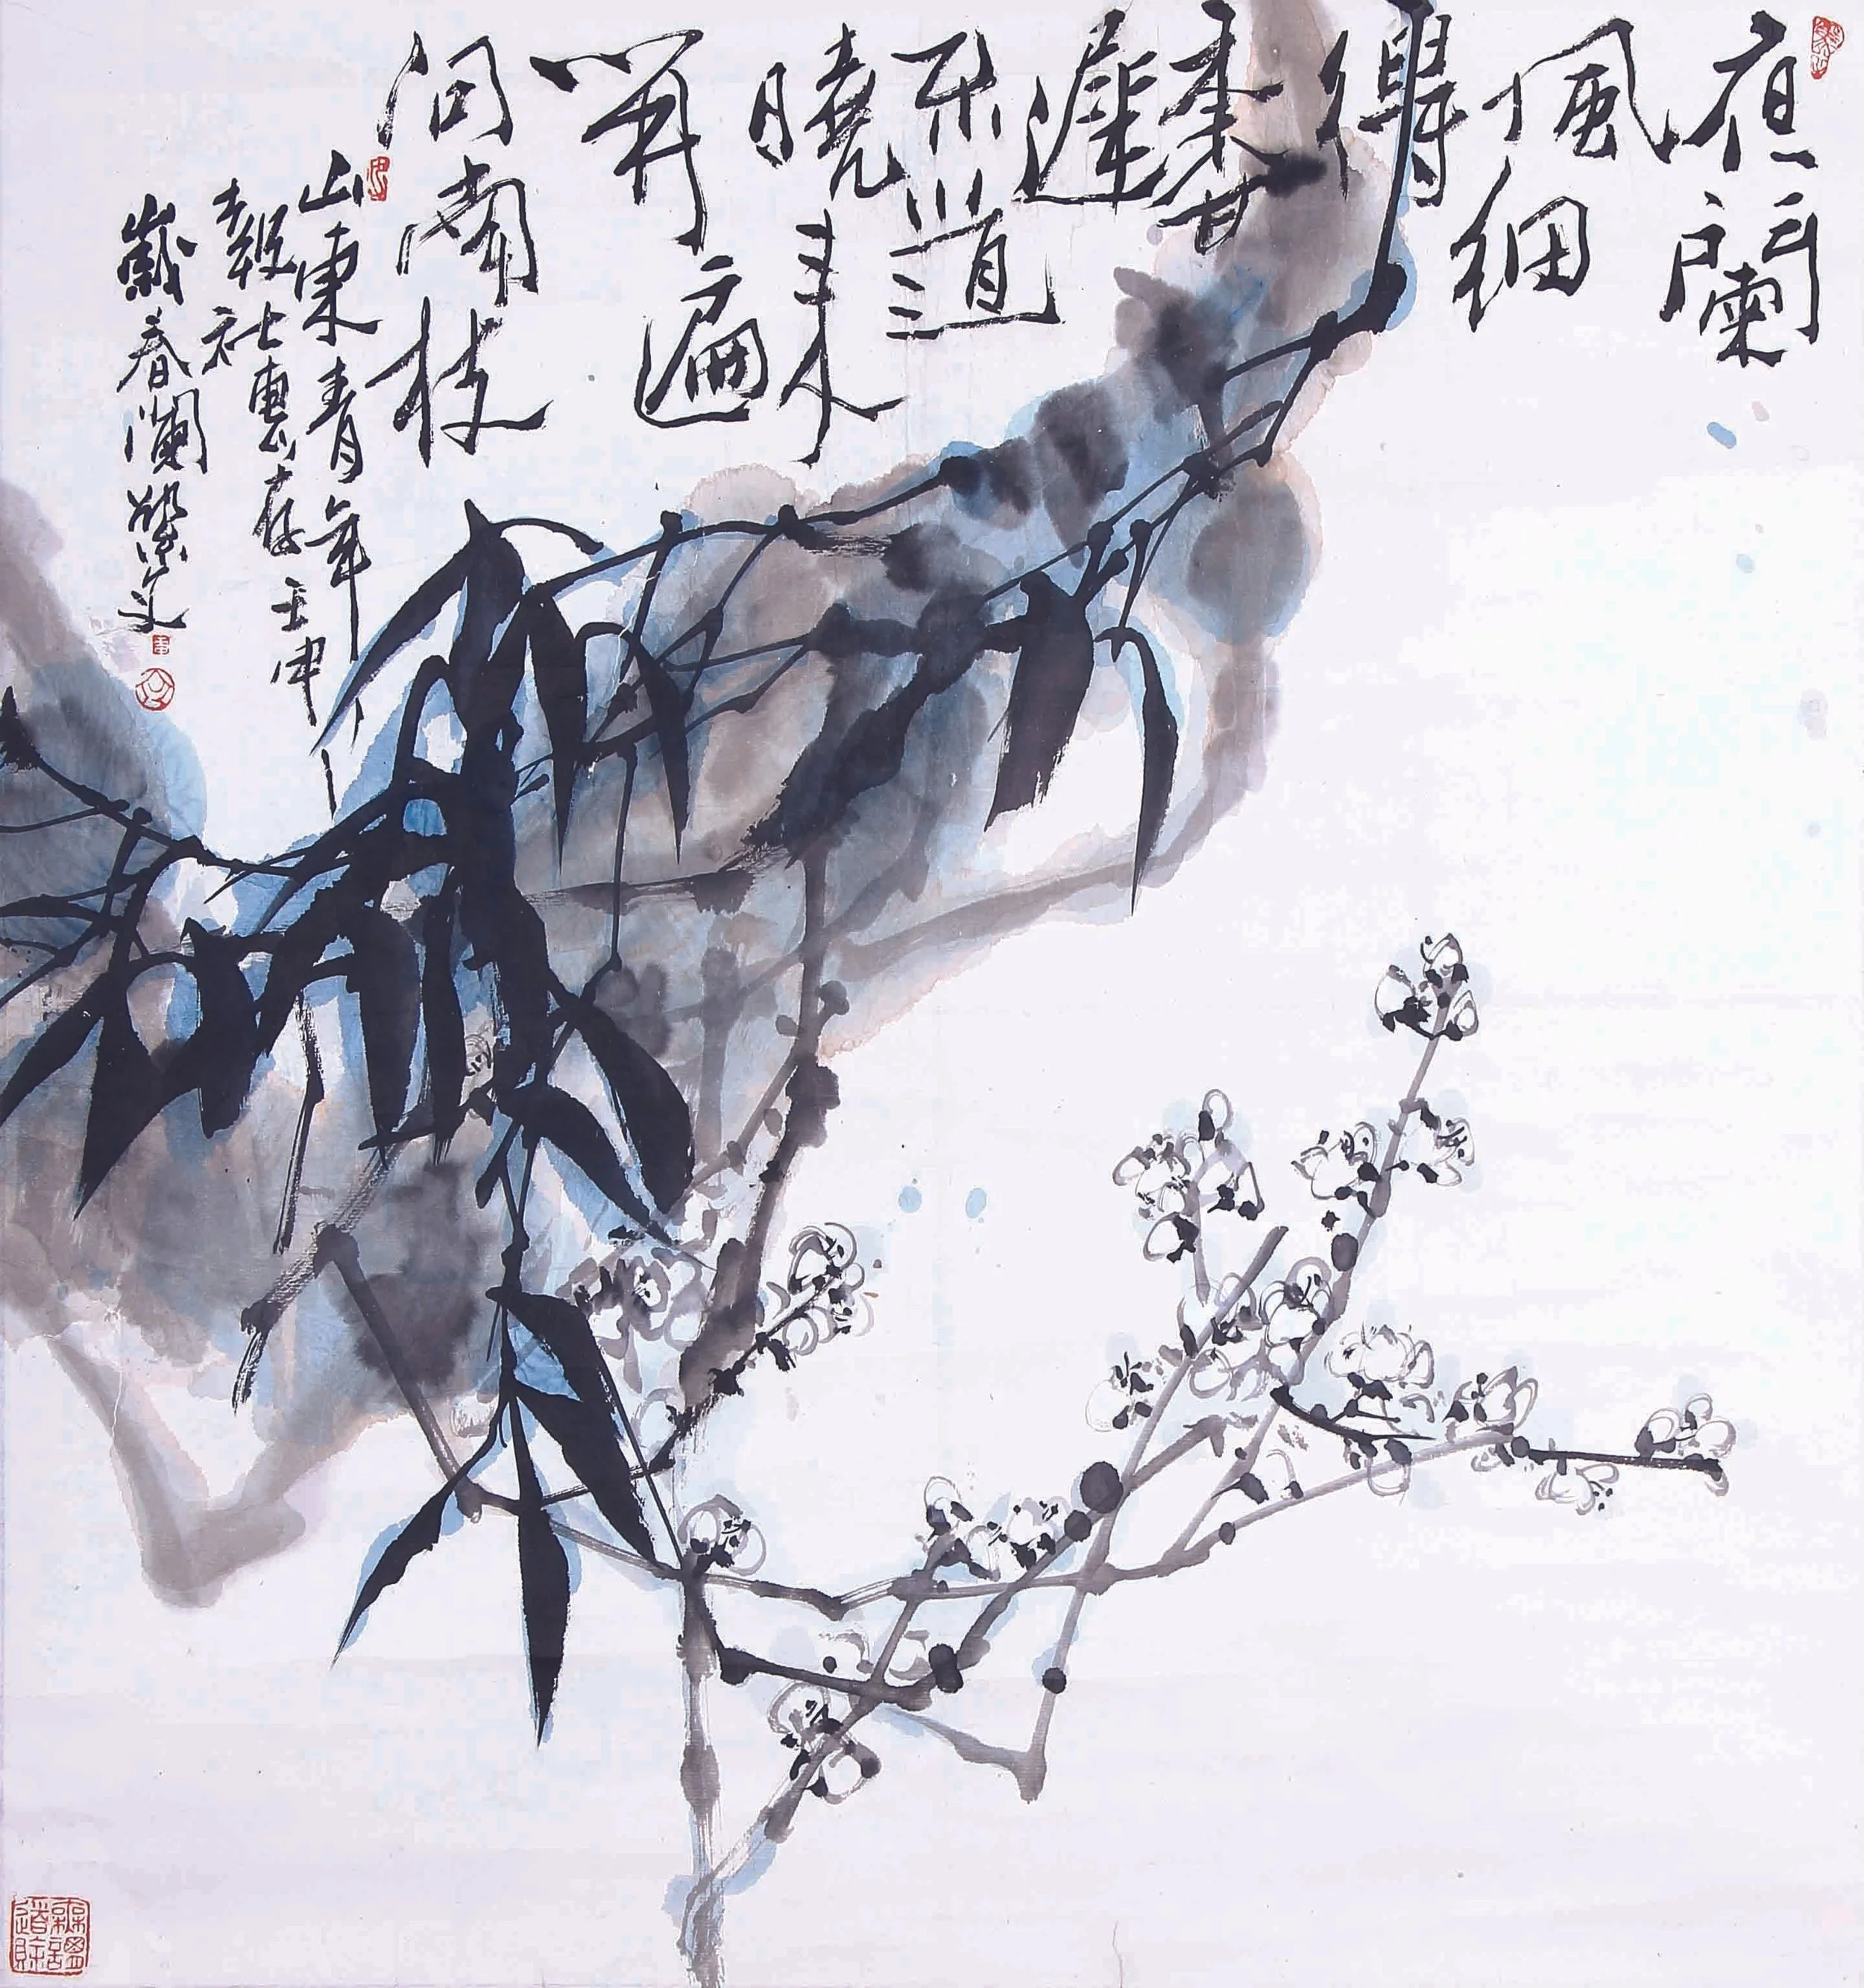 夜闌
風細
得
香
遲
不道
曉來
開遍
向南枝
山東青年
報社惠存壬申
歲春瀾